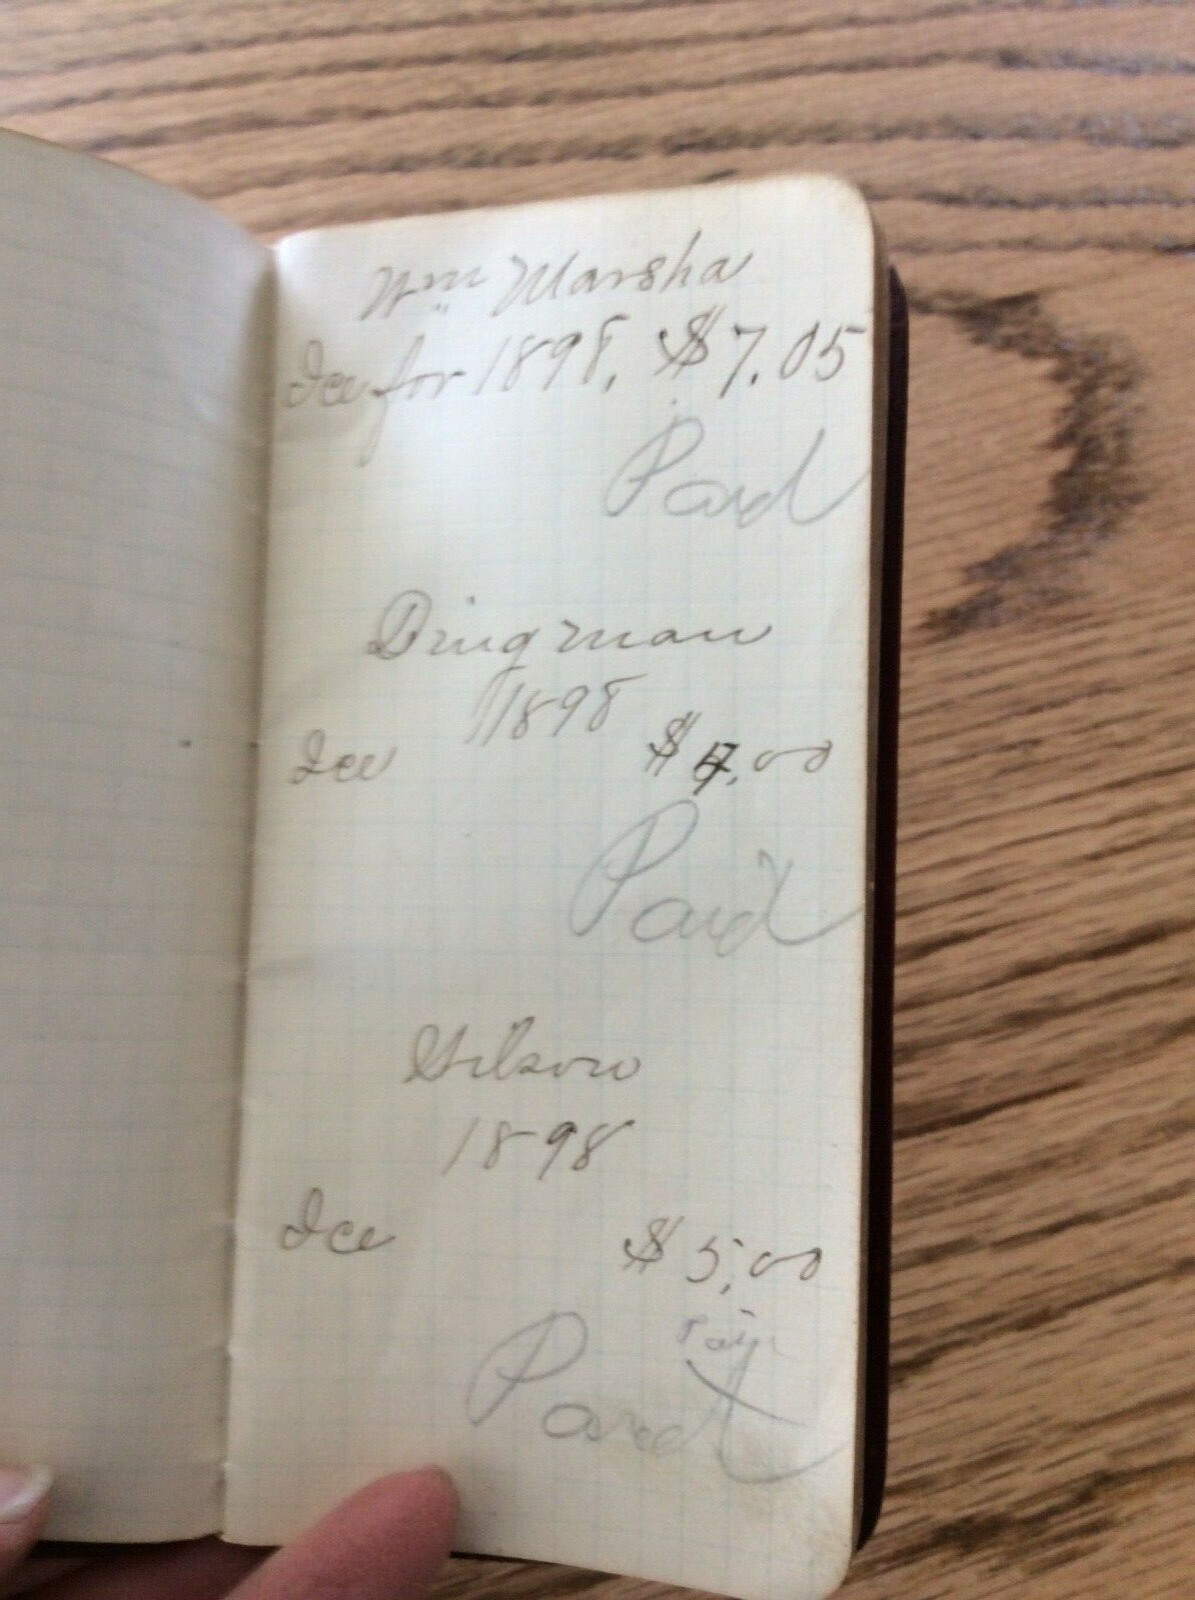 Wm Marsha
Ice for 1898, $7.05
Paid
Dingman
1898
Ice $ .00
Paid
Gilson
1898
Ice $5.00
Paid
Paid